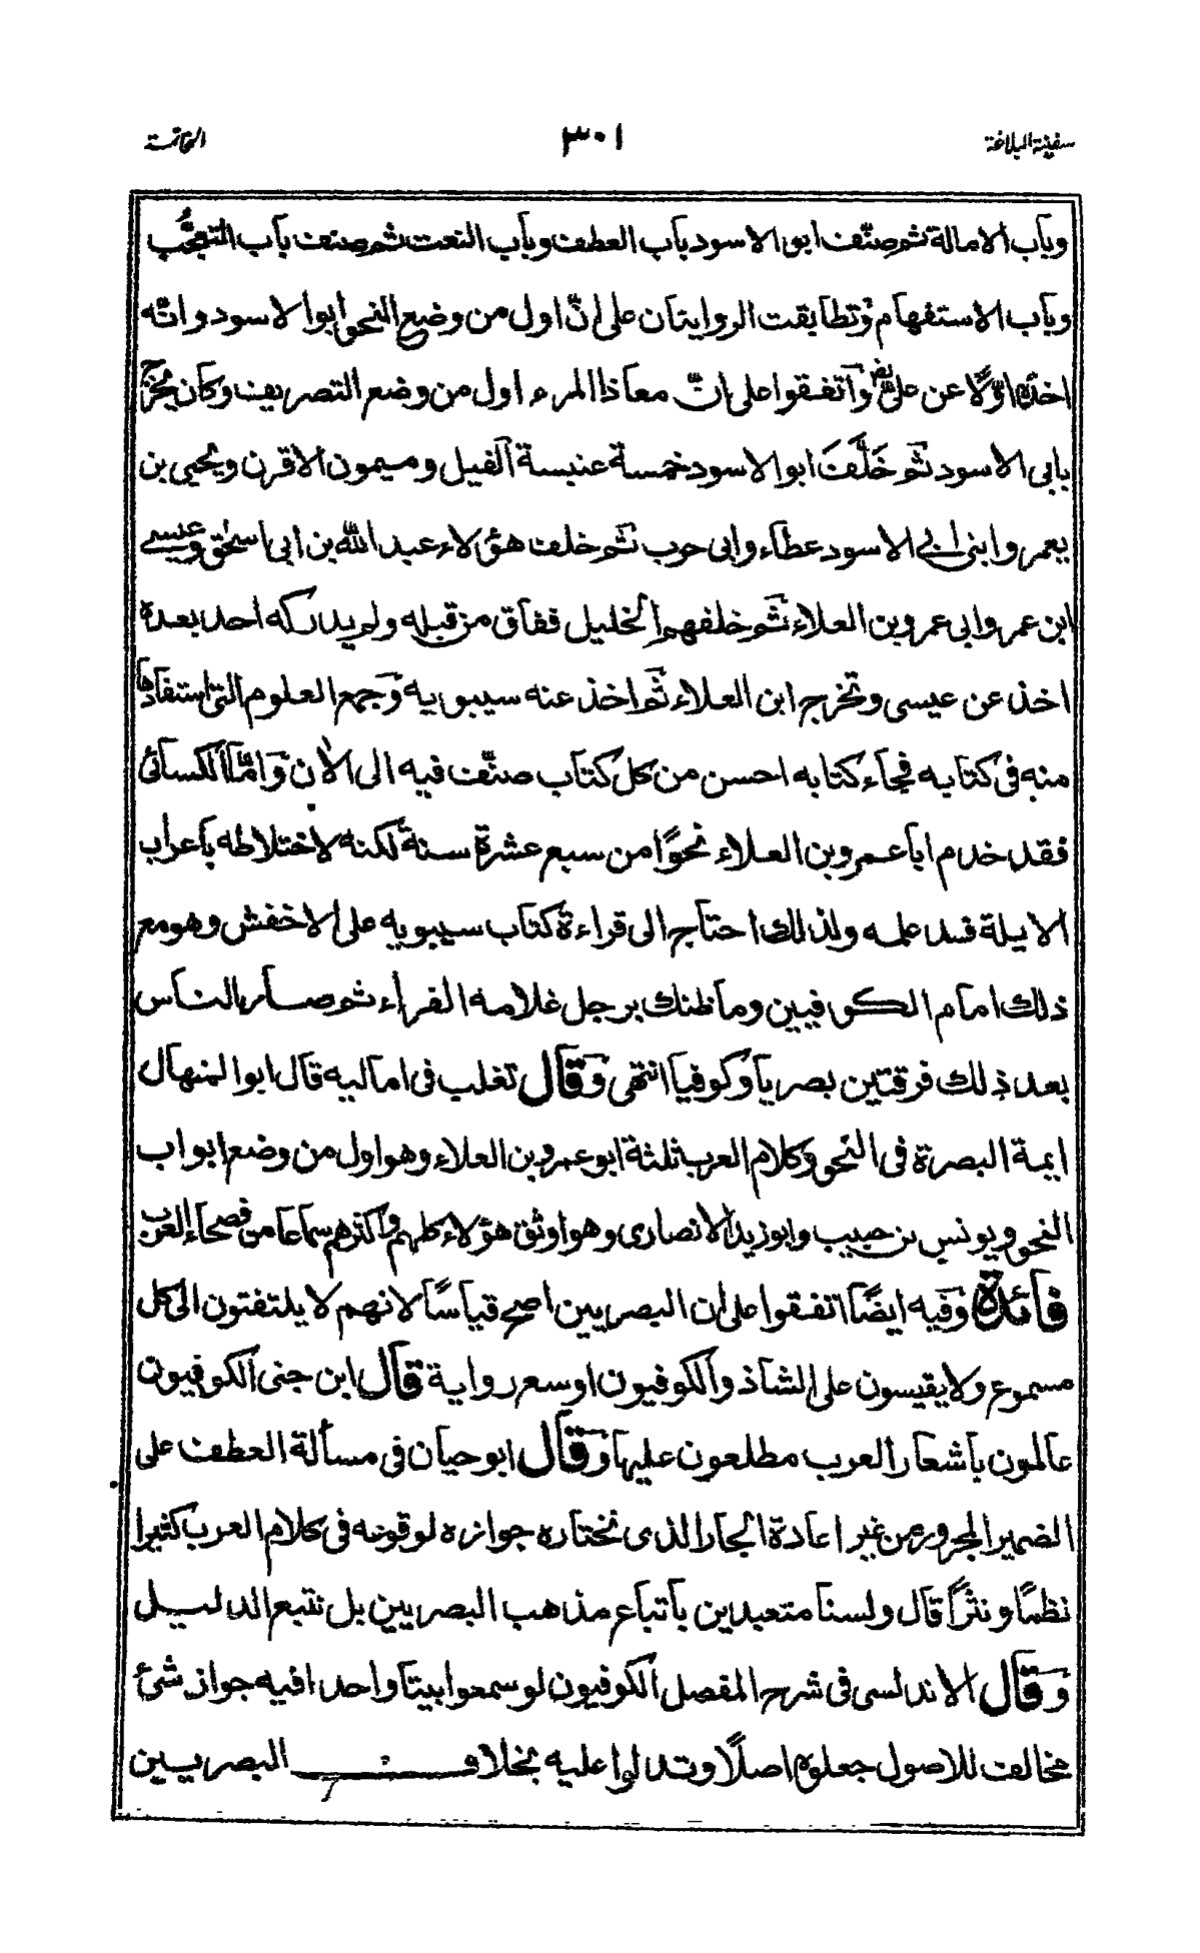 سفينة البلاغة ٣٠١ الخاتمة
وباب الامالة ثم صنّف ابو الاسود باب العطف وباب النعت ثم صنف باب التعجّب
وباب الاستفهام وتطابقت الروايتان على انّ اول من وضع النحو ابو الاسود وانّه
اخذه اوّلًا عن علىّ واتفقوا على انّ معاذا الهراء اول من وضع التصريف وكان تخرّج
بابى الاسود ثم خَلَّفَ ابو الاسود خمسة عنبسة الفيل وميمون الاقرن ويحيى بن
يعمر وابنى ابى الاسود عطاء وابى حرب ثم خلف هؤلاء عبد الله بن ابى اسحٰق وعيسى
ابن عمر وابى عمرو بن العلاء ثم خلفهم الخليل ففاق من قبله ولم يدركه احد بعده
اخذ عن عيسى وتخرج ابن العلاء ثم اخذ عنه سيبويه وجمع العلوم التى استفادها
منه فى كتابه فجاء كتابه احسن من كل كتاب صنّف فيه الى الاٰن وامّا الكسائى
فقد خدم ابا عمرو بن العلاء نحوًا من سبع عشرة سنة لكنه لاختلاطه باعراب
الابلة فسد علمه ولذلك احتاج الى قراءة كتاب سيبويه على الاخفش وهو مع
ذلك امام الكوفيين وما ظنك برجل غلامه الفراء ثم صار الناس
بعد ذلك فرقتين بصريا وكوفيا انتهى وقال ثعلب فى اماليه قال ابو المنهال
ايمة البصرة فى النحو وكلام العرب ثلثة ابو عمرو بن العلاء وهو اول من وضع ابواب
النحو ويونس بن حبيب وابو زيد الانصارى وهو اوثق هؤلاء كلهم واكثرهم سماعا من فصحاء العرب
فائدة وفيه ايضًا اتفقوا على ان البصريين اصح قياسًا لانهم لا يلتفتون الى كل
مسموع ولا يقيسون على الشاذ والكوفيون اوسع رواية قال ابن جنى الكوفيون
عالمون باشعار العرب مطلعون عليها وقال ابو حيان فى مسألة العطف على
الضمير المجرور من غير اعادة الجار الذى نختاره جوازه لوقوعه فى كلام العرب كثيرا
نظمًا ونثرًا قال ولسنا متعبدين باتباع مذهب البصريين بل نتبع الدليل
وقال الاندلسى فى شرح المفصل الكوفيون لو سمعوا بيتا واحدا فيه جواز شئ
مخالف للاصول جعلوه اصلًا وبخلاف البصريين